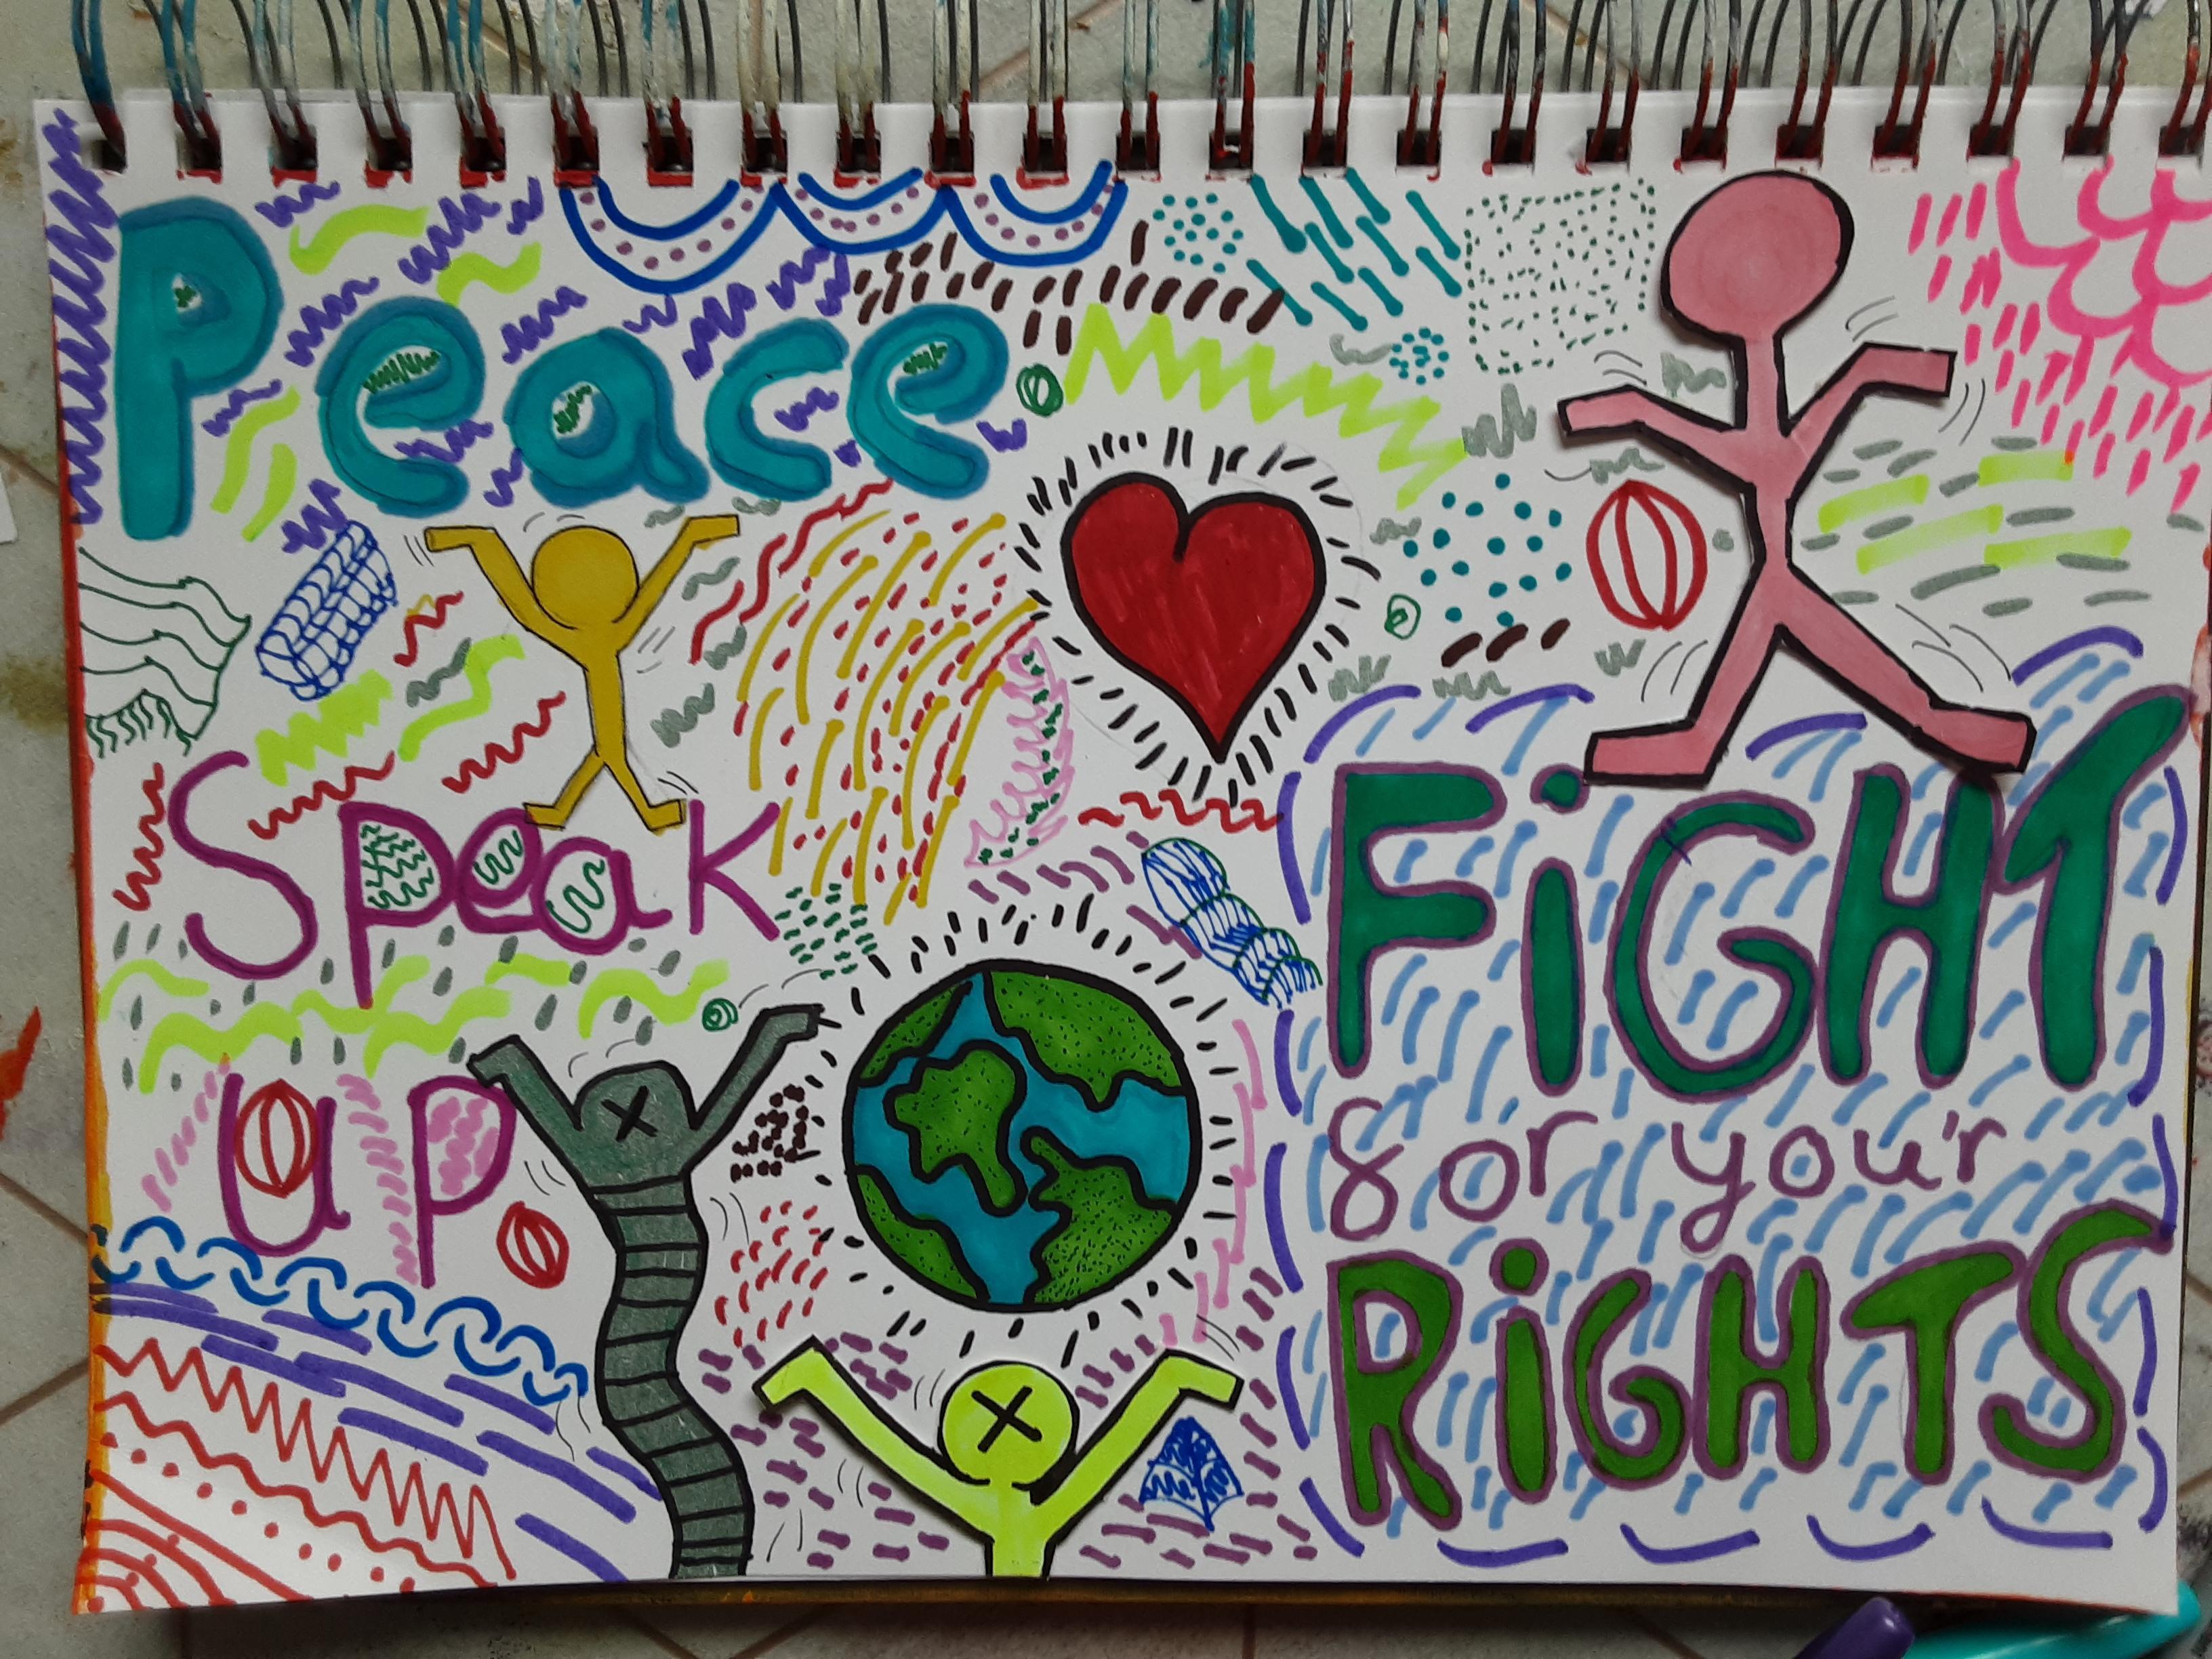 Peace
Speak
up
FiGHT
for you'r
RiGHTS